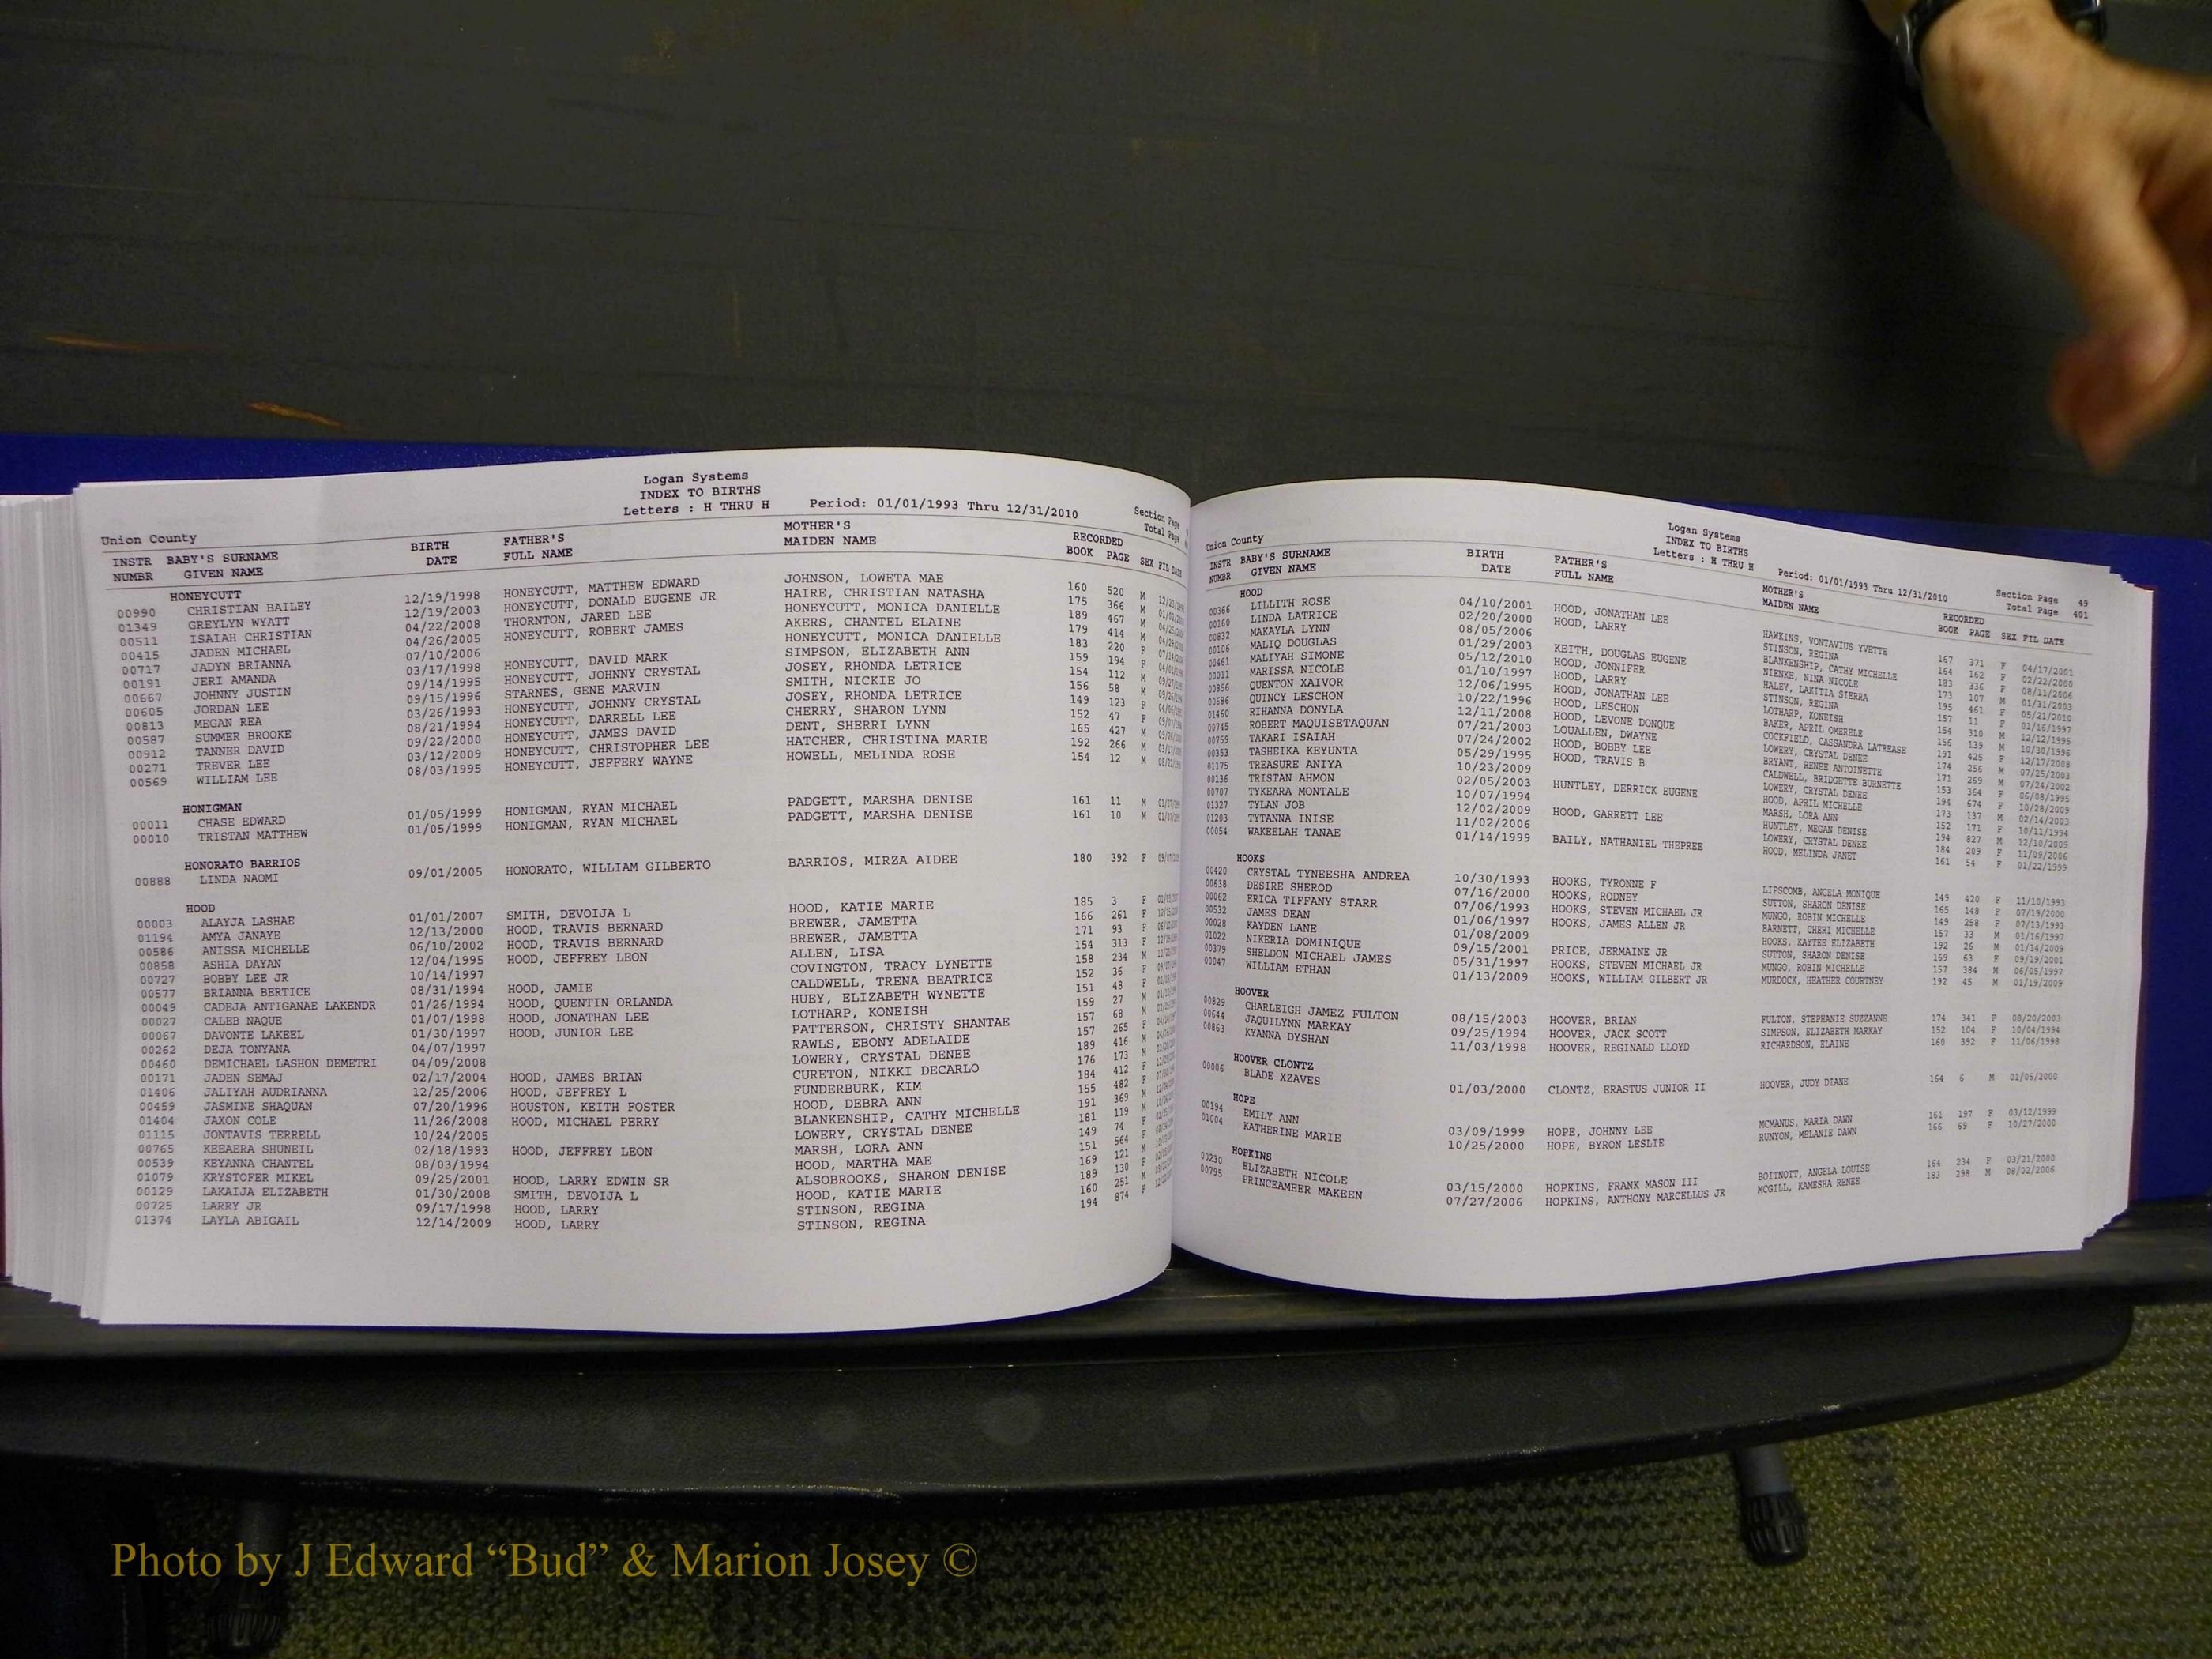 Logan Systems
INDEX TO BIRTHS
Letters : H THRU H Period: 01/01/1993 Thru 12/31/2010
Section Page
Total Page
Union County
INSTR BABY'S SURNAME BIRTH FATHER'S MOTHER'S RECORDED
NUMBR GIVEN NAME DATE FULL NAME MAIDEN NAME BOOK PAGE SEX FIL DATE
HONEYCUTT
00990 CHRISTIAN BAILEY 12/19/1998 HONEYCUTT, MATTHEW EDWARD JOHNSON, LOWETA MAE 160 520 M
01349 GREYLYN WYATT 12/19/2003 HONEYCUTT, DONALD EUGENE JR HAIRE, CHRISTIAN NATASHA 175 366 M
00511 ISAIAH CHRISTIAN 04/22/2008 THORNTON, JARED LEE HONEYCUTT, MONICA DANIELLE 189 467 M
00415 JADEN MICHAEL 04/26/2005 HONEYCUTT, ROBERT JAMES AKERS, CHANTEL ELAINE 179 414 M
00717 JADYN BRIANNA 07/10/2006 HONEYCUTT, MONICA DANIELLE 183 220 F
00191 JERI AMANDA 03/17/1998 HONEYCUTT, DAVID MARK SIMPSON, ELIZABETH ANN 159 194 F
00667 JOHNNY JUSTIN 09/14/1995 HONEYCUTT, JOHNNY CRYSTAL JOSEY, RHONDA LETRICE 154 112 M
00605 JORDAN LEE 09/15/1996 STARNES, GENE MARVIN SMITH, NICKIE JO 156 58 M
00813 MEGAN REA 03/26/1993 HONEYCUTT, JOHNNY CRYSTAL JOSEY, RHONDA LETRICE 149 123 F
00587 SUMMER BROOKE 08/21/1994 HONEYCUTT, DARRELL LEE CHERRY, SHARON LYNN 152 47 F
00912 TANNER DAVID 09/22/2000 HONEYCUTT, JAMES DAVID DENT, SHERRI LYNN 165 427 M
00271 TREVER LEE 03/12/2009 HONEYCUTT, CHRISTOPHER LEE HATCHER, CHRISTINA MARIE 192 266 M
00569 WILLIAM LEE 08/03/1995 HONEYCUTT, JEFFERY WAYNE HOWELL, MELINDA ROSE 154 12 M
HONIGMAN
00011 CHASE EDWARD 01/05/1999 HONIGMAN, RYAN MICHAEL PADGETT, MARSHA DENISE 161 11 M
00010 TRISTAN MATTHEW 01/05/1999 HONIGMAN, RYAN MICHAEL PADGETT, MARSHA DENISE 161 10 M
HONORATO BARRIOS
00888 LINDA NAOMI 09/01/2005 HONORATO, WILLIAM GILBERTO BARRIOS, MIRZA AIDEE 180 392 F
HOOD
00003 ALAYJA LASHAE 01/01/2007 SMITH, DEVOIJA L HOOD, KATIE MARIE 185 3 F
01194 AMYA JANAYE 12/13/2000 HOOD, TRAVIS BERNARD BREWER, JAMETTA 166 261 F
00586 ANISSA MICHELLE 06/10/2002 HOOD, TRAVIS BERNARD BREWER, JAMETTA 171 93 F
00858 ASHIA DAYAN 12/04/1995 HOOD, JEFFREY LEON ALLEN, LISA 154 313 F
00727 BOBBY LEE JR 10/14/1997 COVINGTON, TRACY LYNETTE 158 234 M
00577 BRIANNA BERTICE 08/31/1994 HOOD, JAMIE CALDWELL, TRENA BEATRICE 152 36 F
00049 CADEJA ANTIGANAE LAKENDR 01/26/1994 HOOD, QUENTIN ORLANDA HUEY, ELIZABETH WYNETTE 151 48 F
00027 CALEB NAQUE 01/07/1998 HOOD, JONATHAN LEE LOTHARP, KONEISH 159 27 M
00067 DAVONTE LAKEEL 01/30/1997 HOOD, JUNIOR LEE PATTERSON, CHRISTY SHANTAE 157 68 M
00262 DEJA TONYANA 04/07/1997 RAWLS, EBONY ADELAIDE 157 265 F
00460 DEMICHAEL LASHON DEMETRI 04/09/2008 LOWERY, CRYSTAL DENEE 189 416 M
00171 JADEN SEMAJ 02/17/2004 HOOD, JAMES BRIAN CURETON, NIKKI DECARLO 176 173 M
01406 JALIYAH AUDRIANNA 12/25/2006 HOOD, JEFFREY L FUNDERBURK, KIM 184 412 F
00459 JASMINE SHAQUAN 07/20/1996 HOUSTON, KEITH FOSTER HOOD, DEBRA ANN 155 482 F
01404 JAXON COLE 11/26/2008 HOOD, MICHAEL PERRY BLANKENSHIP, CATHY MICHELLE 191 369 M
01115 JONTAVIS TERRELL 10/24/2005 LOWERY, CRYSTAL DENEE 181 119 M
00765 KEEAERA SHUNEIL 02/18/1993 HOOD, JEFFREY LEON MARSH, LORA ANN 149 74 F
00539 KEYANNA CHANTEL 08/03/1994 HOOD, MARTHA MAE 151 564 F
01079 KRYSTOFER MIKEL 09/25/2001 HOOD, LARRY EDWIN SR ALSOBROOKS, SHARON DENISE 169 121 M
00129 LAKAIJA ELIZABETH 01/30/2008 SMITH, DEVOIJA L HOOD, KATIE MARIE 189 130 F
00725 LARRY JR 09/17/1998 HOOD, LARRY STINSON, REGINA 160 251 M
01374 LAYLA ABIGAIL 12/14/2009 HOOD, LARRY STINSON, REGINA 194 874 F
Logan Systems
INDEX TO BIRTHS
Letters : H THRU H Period: 01/01/1993 Thru 12/31/2010
Section Page 49
Total Page 401
Union County
INSTR BABY'S SURNAME BIRTH FATHER'S MOTHER'S RECORDED
NUMBR GIVEN NAME DATE FULL NAME MAIDEN NAME BOOK PAGE SEX FIL DATE
HOOD
00366 LILLITH ROSE 04/10/2001 HOOD, JONATHAN LEE HAWKINS, VONTAVIUS YVETTE 167 371 F 04/17/2001
00160 LINDA LATRICE 02/20/2000 HOOD, LARRY STINSON, REGINA 164 162 F 02/22/2000
00832 MAKAYLA LYNN 08/05/2006 BLANKENSHIP, CATHY MICHELLE 183 336 F 08/11/2006
00106 MALIQ DOUGLAS 01/29/2003 KEITH, DOUGLAS EUGENE NIENKE, NINA NICOLE 173 107 M 01/31/2003
00461 MALIYAH SIMONE 05/12/2010 HOOD, JONNIFER HALEY, LAKITIA SIERRA 195 461 F 05/21/2010
00011 MARISSA NICOLE 01/10/1997 HOOD, LARRY STINSON, REGINA 157 11 F 01/16/1997
00856 QUENTON XAIVOR 12/06/1995 HOOD, JONATHAN LEE LOTHARP, KONEISH 154 310 M 12/12/1995
00686 QUINCY LESCHON 10/22/1996 HOOD, LESCHON BAKER, APRIL OMERELE 156 139 M 10/30/1996
01460 RIHANNA DONYLA 12/11/2008 HOOD, LEVONE DONQUE COCKFIELD, CASSANDRA LATREASE 191 425 F 12/17/2008
00745 ROBERT MAQUISETAQUAN 07/21/2003 LOUALLEN, DWAYNE LOWERY, CRYSTAL DENEE 174 256 M 07/25/2003
00759 TAKARI ISAIAH 07/24/2002 HOOD, BOBBY LEE BRYANT, RENEE ANTOINETTE 171 269 M 07/24/2002
00353 TASHEIKA KEYUNTA 05/29/1995 HOOD, TRAVIS B CALDWELL, BRIDGETTE BURNETTE 153 364 F 06/08/1995
01175 TREASURE ANIYA 10/23/2009 LOWERY, CRYSTAL DENEE 194 674 F 10/28/2009
00136 TRISTAN AHMON 02/05/2003 HUNTLEY, DERRICK EUGENE HOOD, APRIL MICHELLE 173 137 M 02/14/2003
00707 TYKEARA MONTALE 10/07/1994 MARSH, LORA ANN 152 171 F 10/11/1994
01327 TYLAN JOB 12/02/2009 HOOD, GARRETT LEE HUNTLEY, MEGAN DENISE 194 827 M 12/10/2009
01203 TYTANNA INISE 11/02/2006 LOWERY, CRYSTAL DENEE 184 209 F 11/09/2006
00054 WAKEELAH TANAE 01/14/1999 BAILY, NATHANIEL THEPREE HOOD, MELINDA JANET 161 54 F 01/22/1999
HOOKS
00420 CRYSTAL TYNEESHA ANDREA 10/30/1993 HOOKS, TYRONNE F LIPSCOMB, ANGELA MONIQUE 149 420 F 11/10/1993
00638 DESIRE SHEROD 07/16/2000 HOOKS, RODNEY SUTTON, SHARON DENISE 165 148 F 07/19/2000
00062 ERICA TIFFANY STARR 07/06/1993 HOOKS, STEVEN MICHAEL JR MUNGO, ROBIN MICHELLE 149 258 F 07/13/1993
00532 JAMES DEAN 01/06/1997 HOOKS, JAMES ALLEN JR BARNETT, CHERI MICHELLE 157 33 M 01/16/1997
00028 KAYDEN LANE 01/08/2009 HOOKS, KAYTEE ELIZABETH 192 26 M 01/14/2009
01022 NIKERIA DOMINIQUE 09/15/2001 PRICE, JERMAINE JR SUTTON, SHARON DENISE 169 63 F 09/19/2001
00379 SHELDON MICHAEL JAMES 05/31/1997 HOOKS, STEVEN MICHAEL JR MUNGO, ROBIN MICHELLE 157 384 M 06/05/1997
00047 WILLIAM ETHAN 01/13/2009 HOOKS, WILLIAM GILBERT JR MURDOCK, HEATHER COURTNEY 192 45 M 01/19/2009
HOOVER
00829 CHARLEIGH JAMEZ FULTON 08/15/2003 HOOVER, BRIAN FULTON, STEPHANIE SUZZANNE 174 341 F 08/20/2003
00644 JAQUILYNN MARKAY 09/25/1994 HOOVER, JACK SCOTT SIMPSON, ELIZABETH MARKAY 152 104 F 10/04/1994
00863 KYANNA DYSHAN 11/03/1998 HOOVER, REGINALD LLOYD RICHARDSON, ELAINE 160 392 F 11/06/1998
HOOVER CLONTZ
00006 BLADE XZAVES 01/03/2000 CLONTZ, ERASTUS JUNIOR II HOOVER, JUDY DIANE 164 6 M 01/05/2000
HOPE
00194 EMILY ANN 03/09/1999 HOPE, JOHNNY LEE MCMANUS, MARIA DAWN 161 197 F 03/12/1999
01004 KATHERINE MARIE 10/25/2000 HOPE, BYRON LESLIE RUNYON, MELANIE DAWN 166 69 F 10/27/2000
HOPKINS
00230 ELIZABETH NICOLE 03/15/2000 HOPKINS, FRANK MASON III BOITNOTT, ANGELA LOUISE 164 234 F 03/21/2000
00795 PRINCEAMEER MAKEEN 07/27/2006 HOPKINS, ANTHONY MARCELLUS JR MCGILL, KAMESHA RENEE 183 298 M 08/02/2006
Photo by J Edward “Bud” & Marion Josey ©